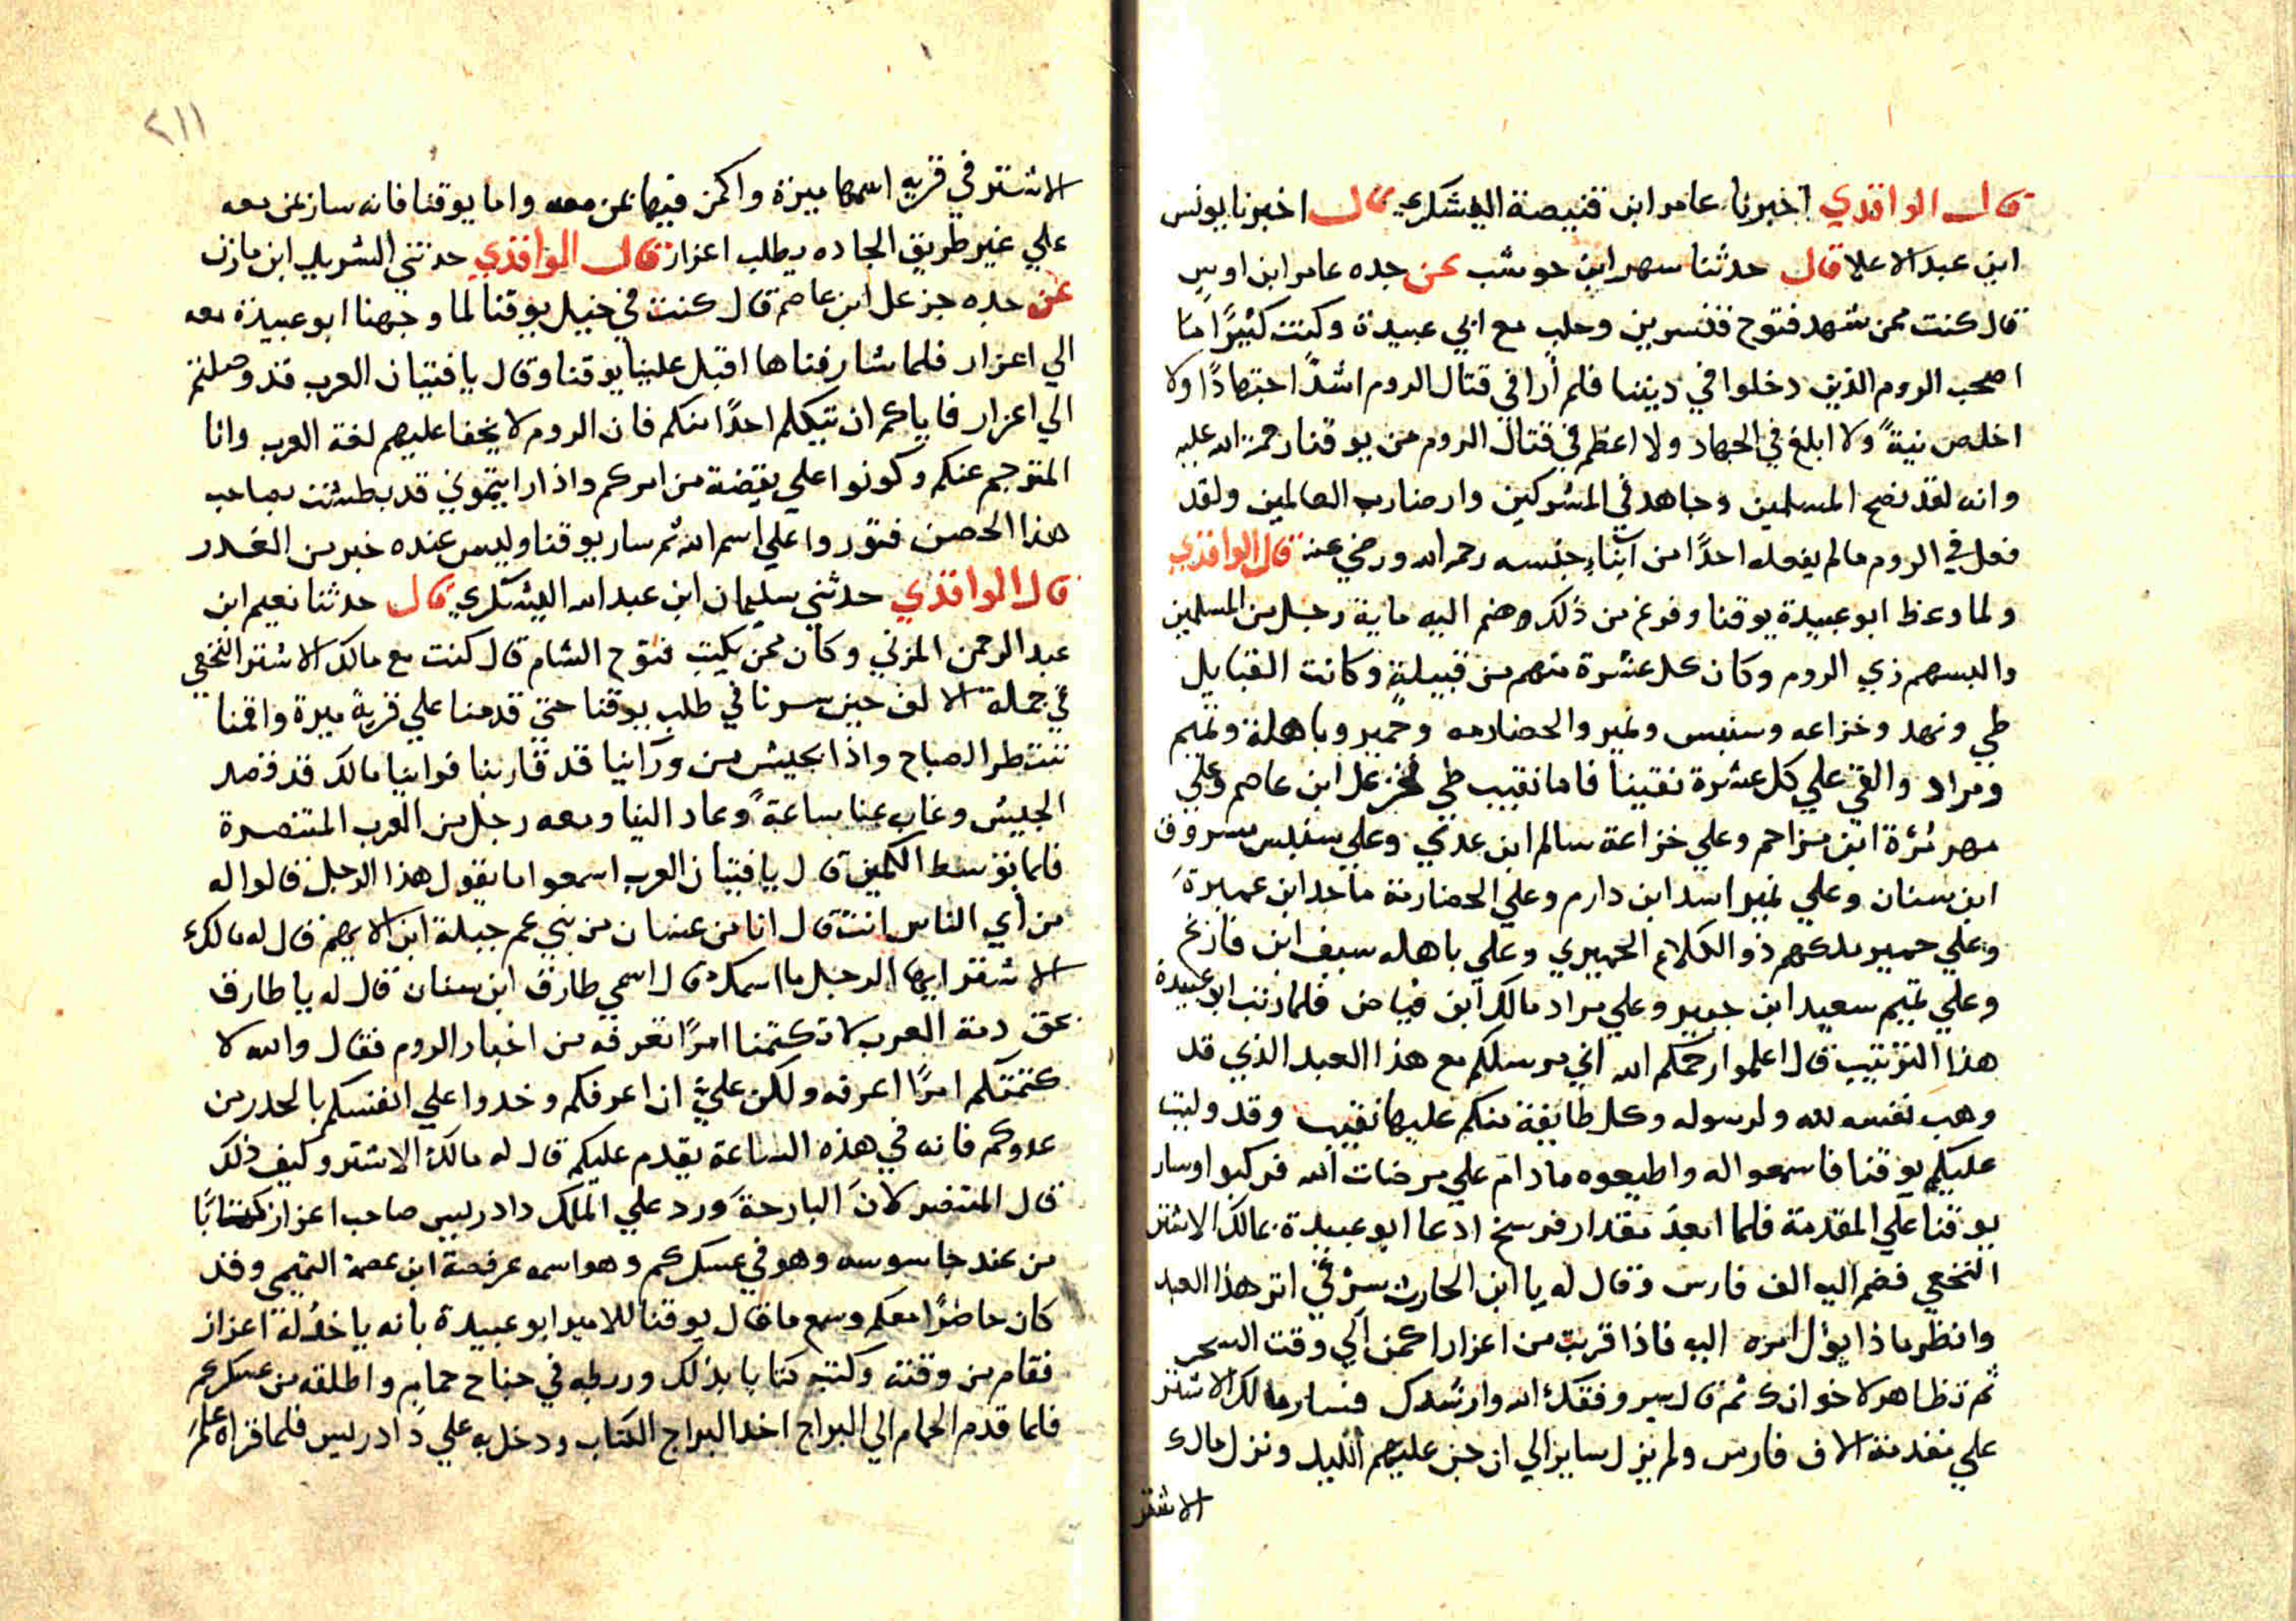 قال الواقدي اخبرنا عامر ابن قبيصة اليشكري قال اخبرنا يونس
ابن عبد الاعلا قال حدثنا سهر ابن حوشب عن جده عامر ابن اوس
قال كنت ممن شهد فتوح قنسرين وحلب مع ابي عبيدة وكنت كثيرًا ما
اصحب الروم الذين دخلوا في ديننا فلم أرا في قتال الروم اشدًا اجتهادًا ولا
اخلص نيةً ولا ابلغ في الجهاد ولا اعظم في قتال الروم من يوقنا رحمة الله عليه
وانه لقد نصح المسلمين وجاهد في المشركين وارضا رب العالمين ولقد
فعل في الروم مالم يفعله احدًا من أبناء جنسه رحمه الله ورضي عنه قال الواقدي
ولما وعظ ابو عبيدة يوقنا وفرغ من ذلك وضم اليه ماية رجل من المسلمين
والبسهم زي الروم وكان كل عشرة منهم من قبيلةٍ وكانت القبايل
طي ونهد وخزاعه وسنبس ونمير والحضارمه وحمير وباهلة وتميم
ومراد والقي علي كل عشرة نقيبنا فاما نقيب طي فجزعل ابن عاصم وعلي
مهر مُرّة ابن مزاحم وعلي خزاعة سالم ابن عدي وعلي سنبس مسروق
ابن سنان وعلي نمير اسد ابن دارم وعلي الحضارمة ماجد ابن عميرةَ
وعلي حمير ملكهم ذو الكلاع الحميري وعلي باهله سيف ابن قارع
وعلي تميم سعيد ابن جبير وعلي مراد مالك ابن فياض فلما رتب ابو عبيدة
هذا الترتيب قال اعلموا رحمكم الله اني مرسلكم مع هذا العبد الذي قد
وهب نفسه لله ولرسوله وكل طايفة منكم عليها نقيب وقد وليت
عليكم يوقنا فاسمعوا له واطيعوه ما دام علي مرضات الله فركبوا وسار
يوقنا علي المقدمة فلما ابعد مقدار فرسخ ادعا ابو عبيدة بمالك الاشتر
النخعي فضم اليه الف فارس وقال له يا ابن الحارث سرْ في اثر هذا العبد
وانظر ماذا يؤل امره اليه فاذا قربت من اعزار اكمن الي وقت السحر
ثم تظاهر لاخوانك ثم قال سر وفقك الله وارشدك فسار مالك الاشتر
علي مقدمة الاف فارس ولم يزل سايرًا الي ان جن عليهم الليل ونزل مالك
الاشتر
٢١١
الاشتر في قريه اسمها ميرة واكمن فيها عن معه واما يوقنا فانه سار عن معه
علي غير طريق الجاده يطلب اعزاز قال الواقدي حدثني الشريل ابن مازن
عن جده جزعل ابن عاصم قال كنت في خيل يوقنا لما وجهنا ابو عبيدة معه
الي اعزار فلما شارفناها اقبل علينا يوقنا وقال يا فتيان العرب قد وصلتم
الي اعزار فاياكم ان تيكلم احدًا منكم فان الروم لا يخفا عليهم لغة العرب وانا
المترجم عنكم وكونوا علي يقيضة من امركم واذا رايتموني قد بطشت بصاحب
هذا الحصن فثوروا علي اسم الله ثم سار يوقنا وليس عنده خبر من الغدر
قال الواقدي حدثني سليمان ابن عبد الله اليشكري قال حدثنا نعيم ابن
عبد الرحمن المزني وكان ممن يكتب فتوح الشام قال كنت مع مالك الاشتر النخعي
في جملة الالف حين سرنا في طلب يوقنا حتي قدمنا علي قرية ميرة واقمنا
ننتظر الصباح واذا بجيش من ورآينا قد قاربنا فراينا مالك قد قصد
الجيش وغاب عنا ساعةً وعاد الينا ومعه رجل من العرب المتنصرة
فلما توسط الكمين قال يا فتيان العرب اسمعوا ما يقول هذا الرجل قالوا له
من أي الناس انت قال انا من غسان من بني عم جبلة ابن الايهم قال له مالك
الاشتر ايها الرجل ما اسمك قال اسمي طارق ابن سنان قال له يا طارق
بحق ذمة العرب لا تكتمنا امرًا تعرفه من اخبار الروم فقال والله لا
كتمتكم امرًا اعرفه ولكن عليّ ان اعرفكم وخدوا علي انفسكم بالحدر من
عدوكم فانه في هذه الساعة يقدم عليكم قال له مالك الاشتر وكيف ذلك
قال المتنصر لانَ البارحةَ ورد علي الملك دادريس صاحب اعزاز كتابًا
من عند جاسوسه وهو في عسكركم وهو اسمه عرفصة ابن عصمة التميمي وقد
كان حاضرًا معكم وسمع ما قال يوقنا للامير ابو عبيدة بانه ياخذ له اعزاز
فقام من وقته وكتب كتابا بذلك وربطه في جناح حمام واطلقه من عسكركم
فلما قدم الحمام الي البراج اخد البراج الكتاب ودخل به علي دادريس فلما قراه علم